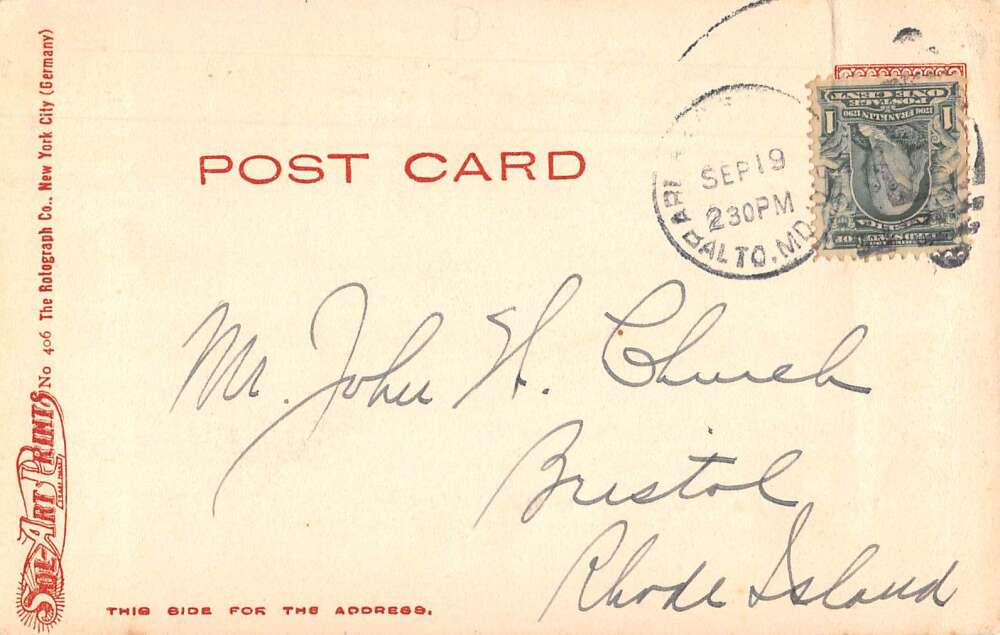 POST CARD
SEP 19
2 30 PM
BALTO. MD.
ONE CENT
POSTAGE
1706 FRANKLIN 1790
1 1
Mr. John H. Church
Bristol
Rhode Island
THIS SIDE FOR THE ADDRESS.
SOL-ART PRINTS No 406 The Rotograph Co., New York City (Germany)
TRADE MARK